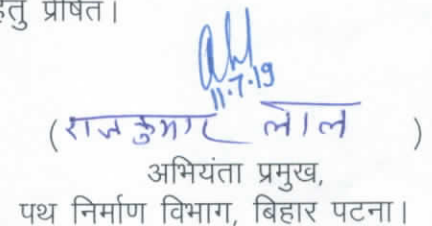 हेतु प्रेषित।
11.7.19
(राजकुमार लाल)
अभियंता प्रमुख,
पथ निर्माण विभाग, बिहार पटना।